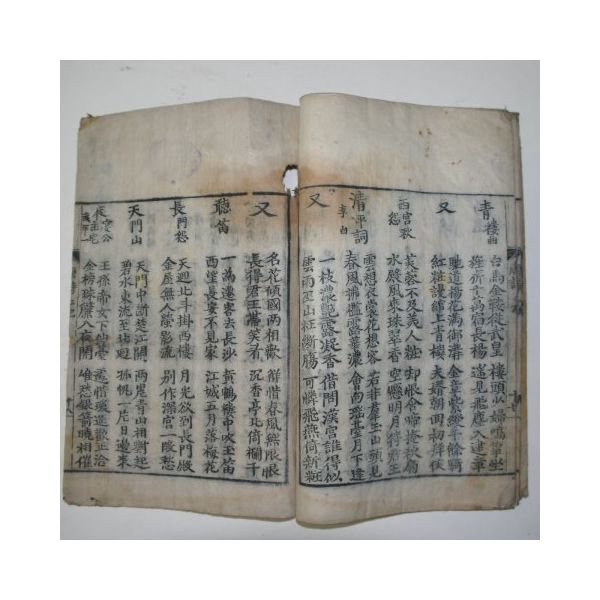 青樓曲
白馬金鞍從武皇 樓頭少婦鳴箏坐
旌旂十萬宿長楊 遥見飛塵入建章
又
馳道楊花滿御溝 金章紫綬千餘騎
紅粧謾綰上青樓 夫婿朝回初拜侯
西宮秋怨
芙蓉不及美人粧 却恨含情掩秋扇
水殿風來珠翠香 空懸明月待君王
清平詞 李白
雲想衣裳花想容 若非羣玉山頭見
春風拂檻露華濃 會向瑤臺月下逢
又
一枝濃艶露凝香 借問漢宮誰得似
雲雨巫山枉斷膓 可憐飛燕倚新粧
又
名花傾國兩相歡 解惜春風無限恨
長得君王帶笑看 沉香亭北倚欄干
聽笛
一爲遷客去長沙 黃鶴樓中吹玉笛
西望長安不見家 江城五月落梅花
長門怨
天迴北斗掛西樓 月光欲到長門殿
金屋無人螢影流 別作深宮一段愁
天門山
天門中斷楚江開 兩岸青山相對起
碧水東流至北迴 孤帆一片日邊來
金榜珠簾入夜開 雄愁銀箭曉相催